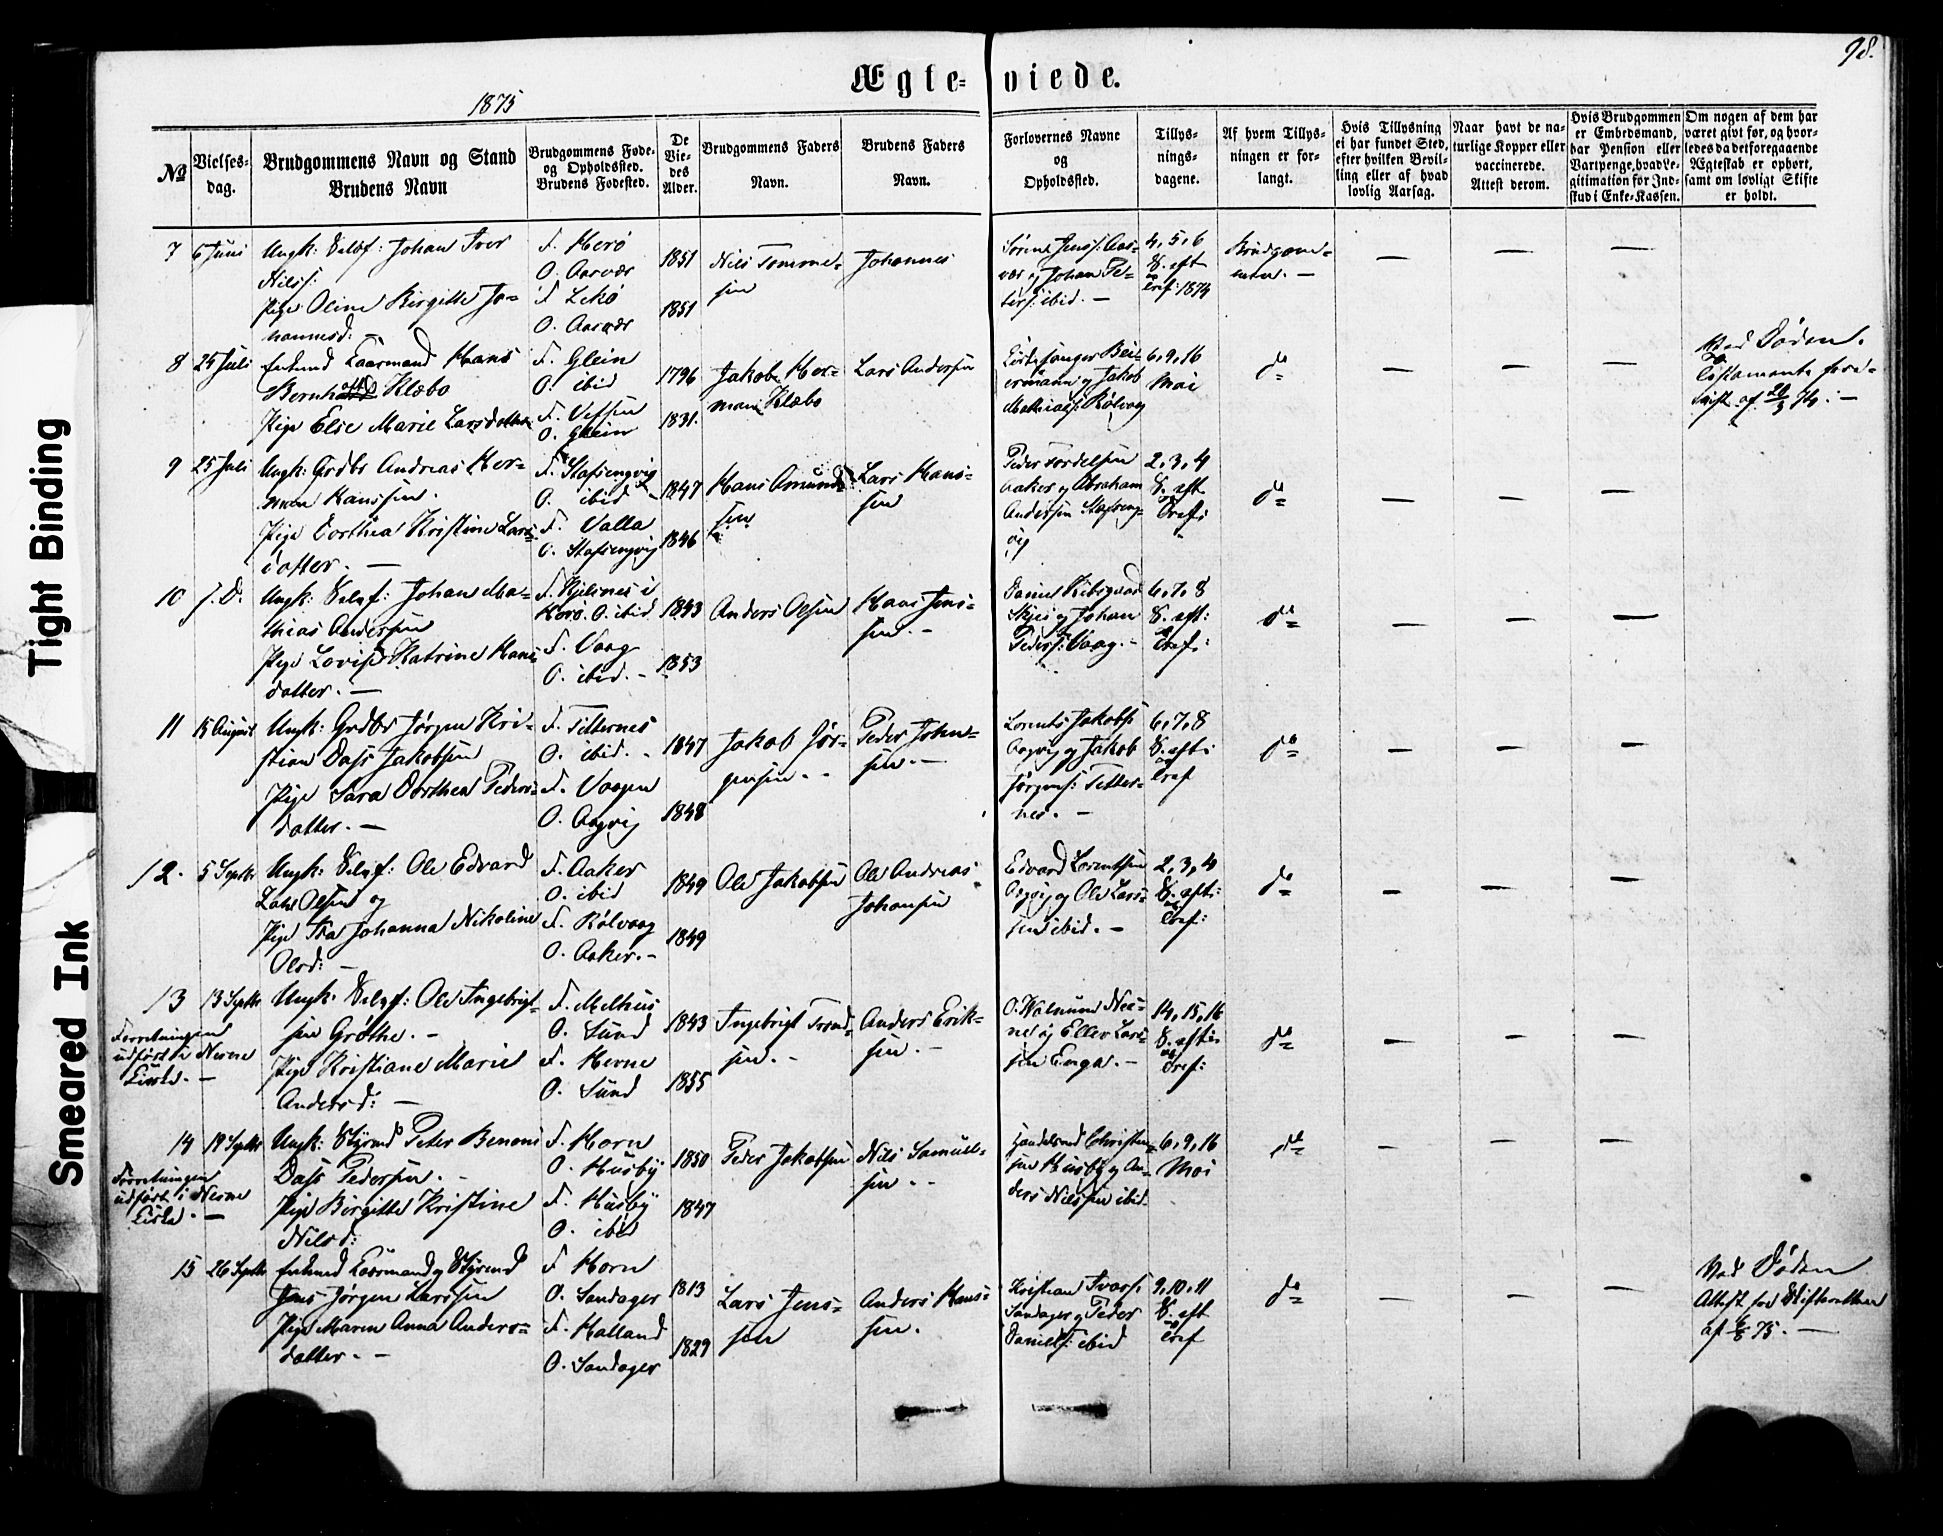 98.
Ægte- viede.
1875
№
Vielses-
dag.
Brudgommens Navn og Stand
Brudens Navn
Brudgommens Føde-
og Opholdssted.
Brudens Fødested.
De
Vie-
des
Alder.
Brudgommens Faders
Navn.
Brudens Faders
Navn.
Forlovernes Navne
og
Opholdssted.
Tillys-
nings-
dagene.
Af hvem Tillys-
ningen er for-
langt.
Hvis Tillysning
ei har fundet Sted,
efter hvilken Bevil-
ling eller af hvad
lovlig Aarsag.
Naar havt de na-
turlige Kopper eller
vaccinerede.
Attest derom.
Hvis Brudgommen
er Embedsmand,
har Pension eller
Vartpenge, hvad Le-
gitimation for Ind-
skud i Enke-Kassen.
Om nogen af dem har
været givt før, og hvor-
ledes da det foregaaende
Ægteskab er ophørt,
samt om lovligt Skifte
er holdt.
7
6 Juni
Ungk: Selvf: Johan Iver
Nilss:
Pige Oline Birgitte Jo-
hannesd: —
F. Herø
O. Aarvær
F. Lekø
O. Aarvær
1851
1851
Nils Tomme-
sen
Johannes
Sørens Jenss: Aar-
vær og Johan Pe-
ters: ibid. —
4, 5, 6
S. eft
Tref: 1874
Brudgom-
men. —
— — —
8
25 Juli
Enkmd Kaarmand Hans
Bernhard Klæbo
Pige Else Marie Larsdatter
F. Glein
O. ibid
F. Vefsen
O. Glein
1796
1831.
Jakob Her-
man Klæbo
Lars Andersen
Kirkesanger Bei-
ermann og Jakob
Mathiass: Rølvaag
6, 9, 16
Mai
do
— — —
Ved Døden.
Testaments fore-
vist af
9
25 Juli
Ungk: Grdbr Andreas Her-
man Hanssen.
Pige Dorthea Kristine Lars-
datter. —
F. Stafsengvig
O. ibid
F. Valla
O. Stafsengvig
1847
1846
Hans Amund-
sen
Lars Hans-
sen
Peder Tordelsen
Aaker og Abraham
Andersen Stafseng-
vig
2, 3, 4
S. eft
Tref:
do
— — —
10
s. D.
Ungk: Selvf: Johan Ma-
thias Andersen
Pige Lovise Katrine Hans-
datter. —
F. Kjelsnes i
Herø. O. ibid
F. Vaag
O. ibid. -
1843
1853
Anders Olsen
Hans Jens-
sen. -
Daniel Ribsgaard
Skjei og Johan
Peders: Vaag. -
6, 7, 8
S. eft:
Tref:
do
— — —
11
15 August
Ungk: Grdbr Jørgen Kri-
stian Dass Jakobsen
Pige Sara Dorthea Peders-
datter. —
F. Titternes
O. ibid. -
F. Vaagen
O. Aagvig
1847
1848
Jakob Jør-
gensen. -
Peder John-
sen. —
Lorents Jakobs:
Aagvig og Jakob
Jørgens: Titter-
nes. —
6, 7, 8
S. eft:
Tref
do
— — —
12.
5 Septbr
Ungk: Selvf: Ole Edvard
Olsen og
Pige Johanna Nikoline
Olsd: —
F. Aaker
O. ibid
F. Rølvaag
O. Aaker. -
1849
1849
Ole Jakobsen
Ole Andreas
Johansen
Edvard Lorentsen
Aagvig og Ole Lars-
sen ibid. —
2, 3, 4
S. eft:
Tref:
do
— — —
13
13 Septbr
Forretningen
udført i Nesne
Kirke. —
Ungk: Selvf: Ole Ingebrigt-
sen Grøthe. -
Pige Kristiane Marie
Andersd: —
F. Melhus
O. Sund
F. Hevne
O. Sund
1843
1855
Ingebrigt Trond-
sen. -
Anders Erik-
sen. -
O. Walnund Nes-
ne og Eller Lars-
sen Enga. -
14, 15, 16
S. eft:
Tref:
do
— — —
14
19 Septbr
Forretningen
udført i Nesne
Kirke. —
Ungk: Styrmd Peter Benoni
Dass Pedersen. -
Pige Birgitte Kristine
Nilsd:
F. Horn
O. Husby
F. Husby
O. ibid
1850
1847
Peder Jakobsen
Nils Samuel-
sen. -
Handelsmd Christen-
sen Husby og An-
ders Nilssen ibid.
6, 9, 16
Mai
do
— — —
15
26 Septbr
Enkmd Kaarmand og Styrmd
Jens Jørgen Larssen
Pige Maren Anna Anders-
datter. -
F Horn
O. Sandager
F. Halland
O. Sandager
1813
1829
Lars Jens-
sen
Anders Hans-
sen.
Kristian Ivars:
Sandager og Peder
Daniels: ibid
9, 10, 11
S. eft
Tref
do
— — —
Ved Døden
Attest fra Skifteretten
af 75. —
Tight Binding
Smeared Ink